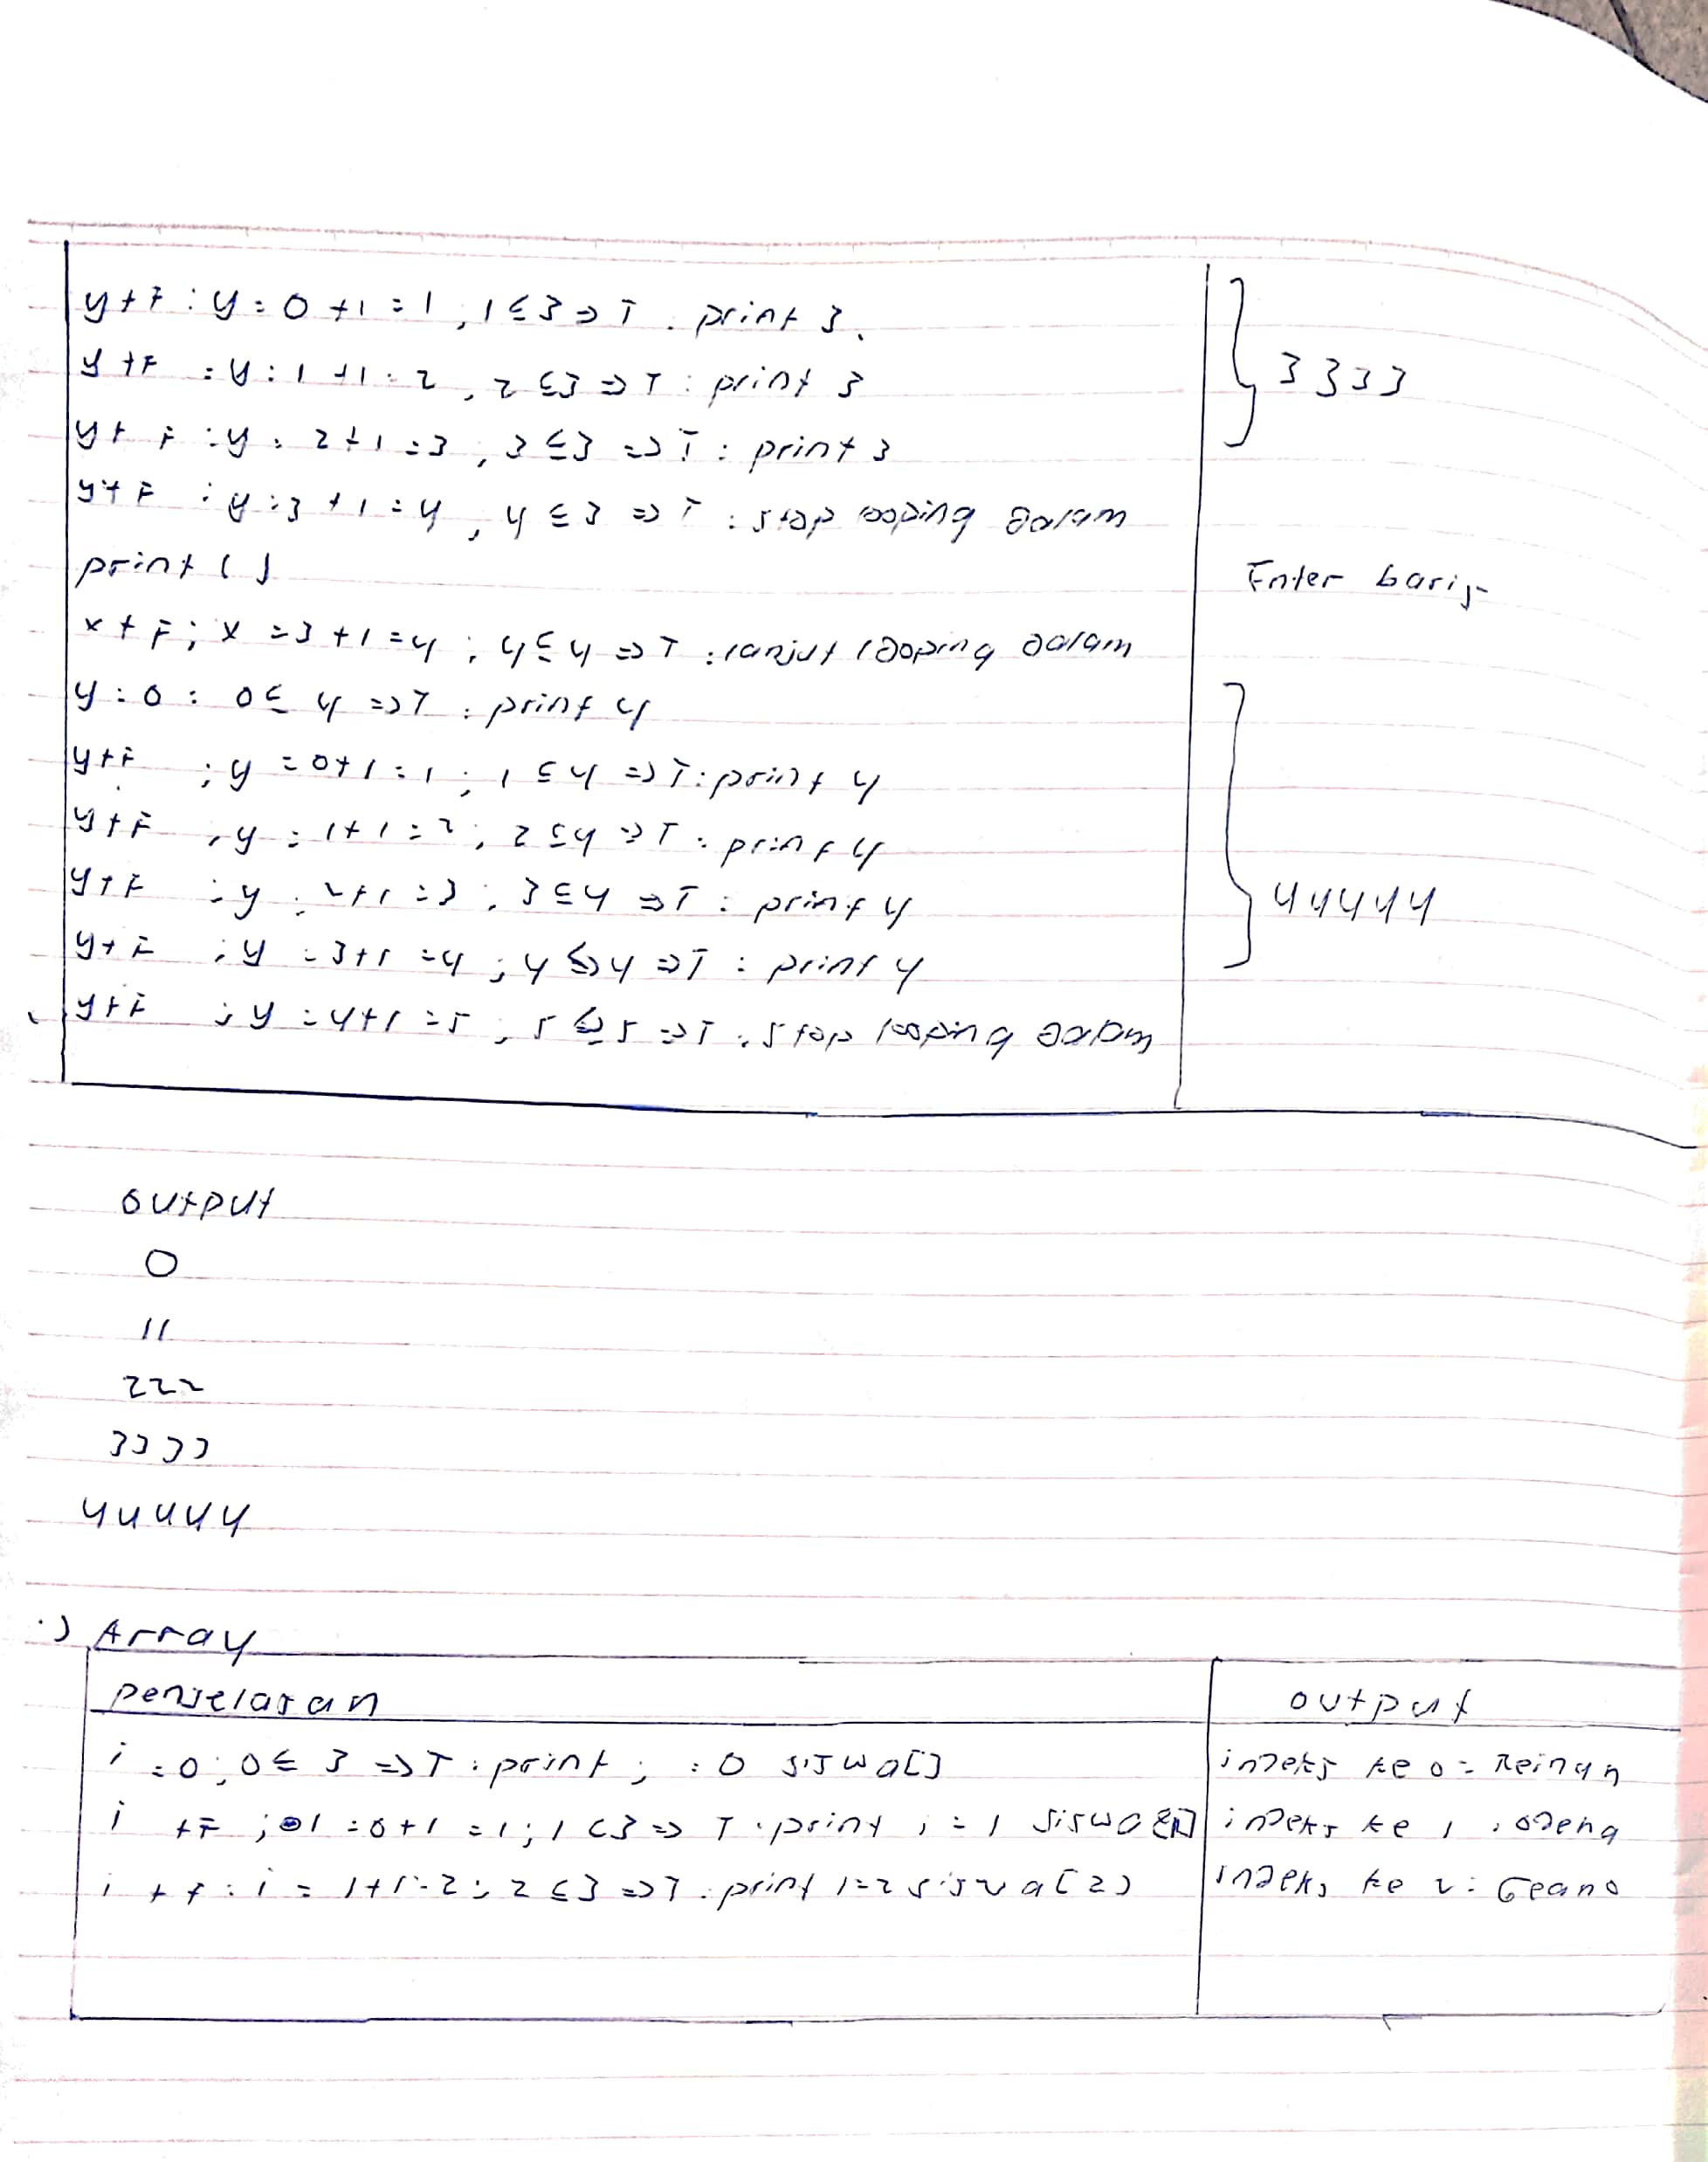 y++ : y = 0 +1 = 1 , 1 ≤ 3 => T . print 3 .
y ++ : y : 1 +1 = 2 , 2 ≤ 3 => T : print 3
3333
y++ : y = 2+1 = 3 , 3 ≤ 3 => T : print 3
y++ : y = 3 +1 = 4 , 4 ≤ 3 => F : stop looping dalam
print ( )
Enter baris
x ++ ; x = 3 +1 = 4 ; 4 ≤ 4 => T : lanjut looping dalam
y = 0 : 0 ≤ 4 => T : print 4
y++ ; y = 0+1 = 1 ; 1 ≤ 4 => T : print 4
y++ , y = 1+1 = 2 , 2 ≤ 4 => T : print 4
y++ : y = 2+1 = 3 , 3 ≤ 4 => T : print 4
44444
y++ ; y = 3+1 = 4 ; 4 ≤ 4 => T : print 4
y++ ; y = 4+1 = 5 , 5 ≤ 5 => T : stop looping dalam
output
0
11
222
3333
44444
.) Array
penjelasan
output
i = 0 ; 0 ≤ 3 => T : print i = 0 siswa[]
indeks ke 0 = Reinan
i ++ ; = 0+1 = 1 ; 1 < 3 => T . print i = 1 siswa
indeks ke 1
i ++ : i = 1+1 = 2 ; 2 ≤ 3 => T . print i=2 siswa[2]
indeks ke 2 : Geano